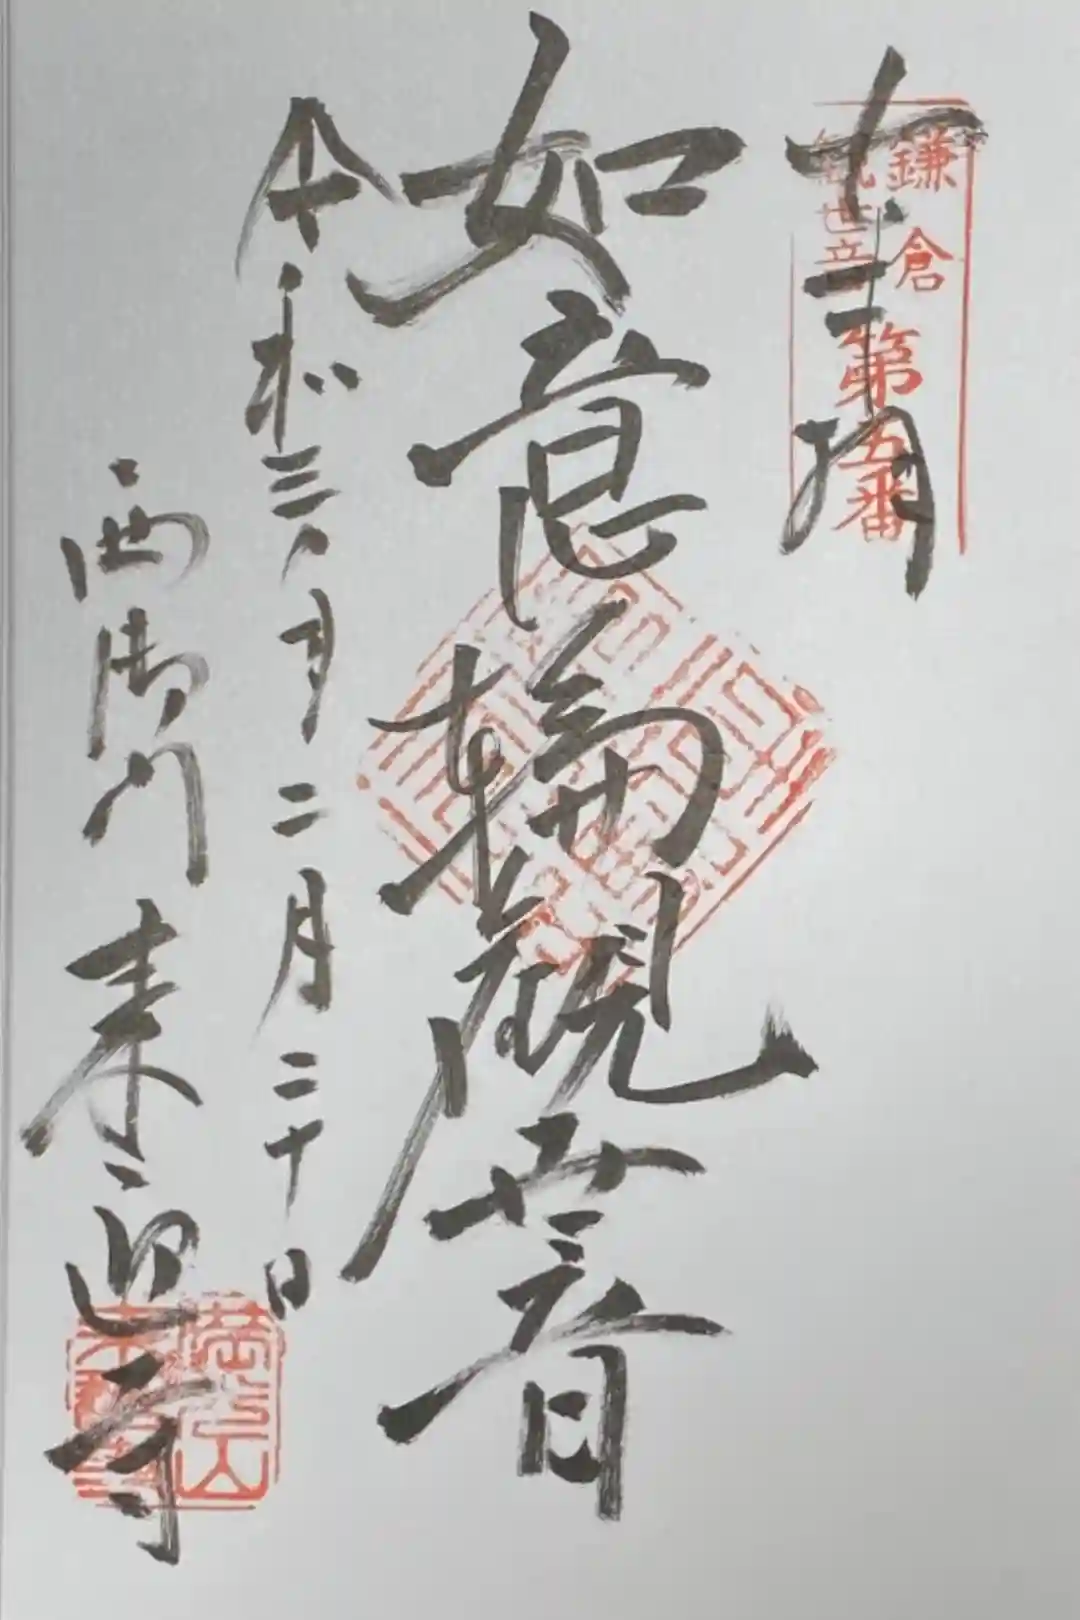 奉拝
鎌倉
観世音
第五番
如意輪観世音
令和三年二月二十日
西御門 来迎寺
満光山
来迎寺